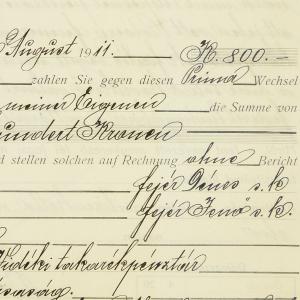 August 1911. K. 800.-
zahlen Sie gegen diesen Prima Wechsel
meiner Eigenen die Summe von
hundert Kronen
d stellen solchen auf Rechnung ohne Bericht
fejér Dénes s.k
fejér Jenő s.k.
Vidéki takarékpénztár